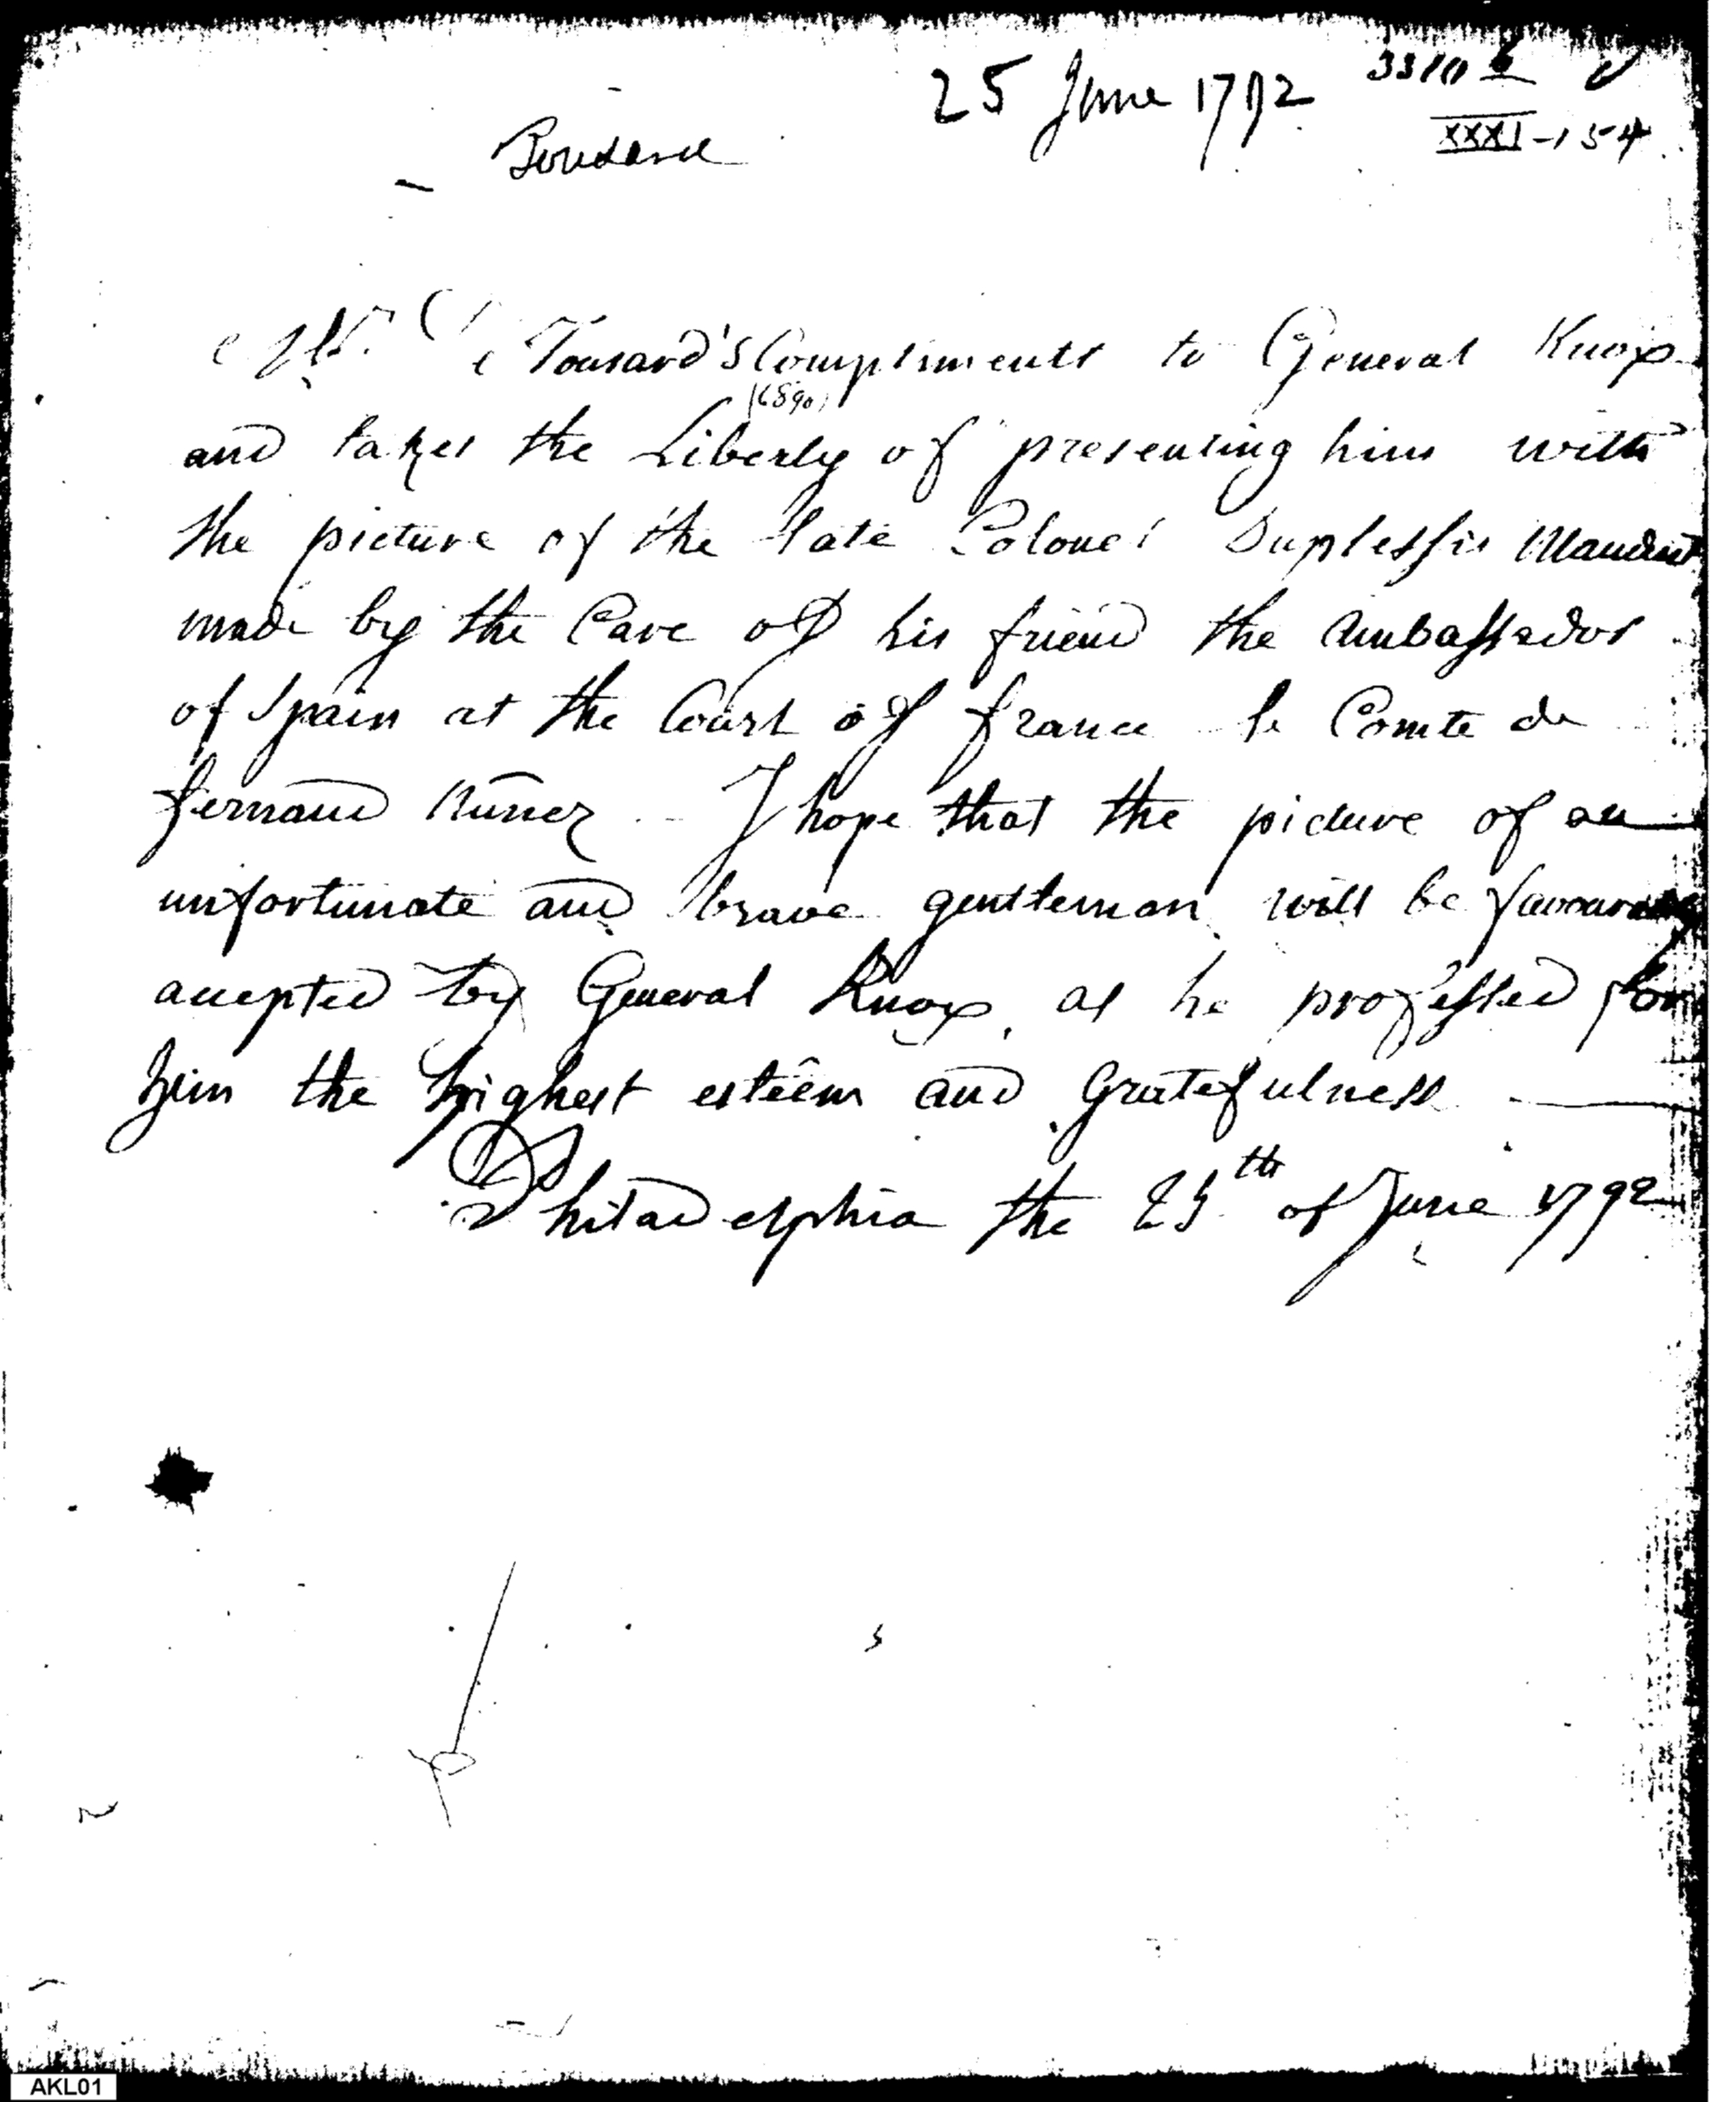 25 June 1792
XXXI-154
Mr. Tousard's Compliments to General Knox
and takes the Liberty of presenting him with
the picture of the late Colonel Duplessis Mauduit
made by the Care of his friend the Ambassador
of Spain at the Court of france le Comte de
fernand Nuñez - I hope that the picture of an
unfortunate and brave gentleman will be favourably
accepted by General Knox, as he professed for
him the highest esteêm and Gratefulness
Philadelphia the 25th of June 1792
AKL01